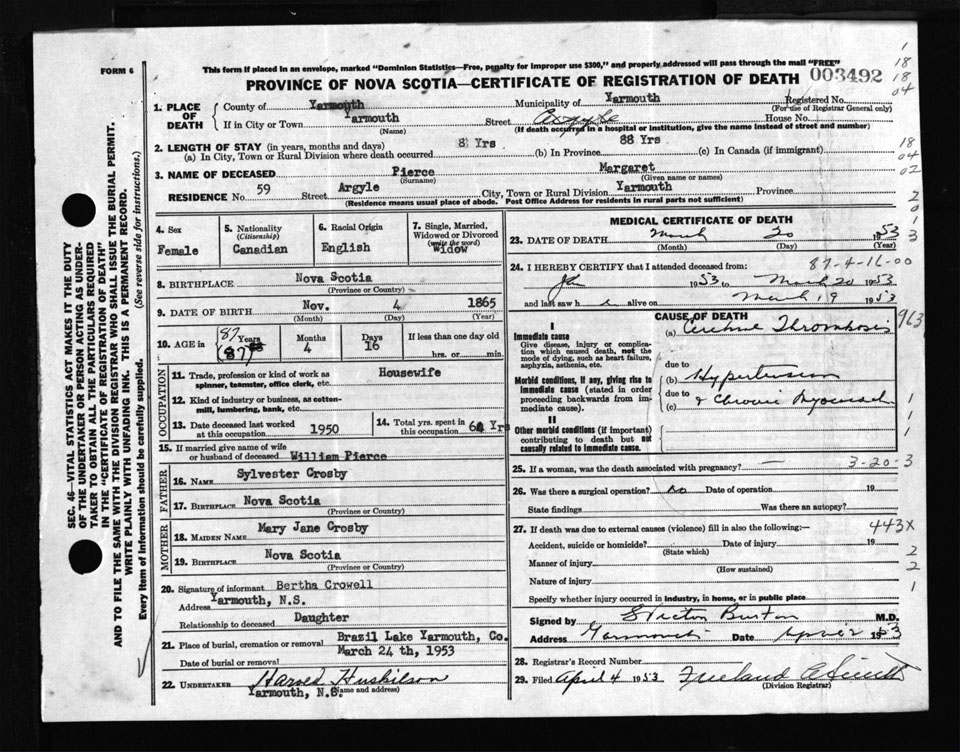 FORM 6
This form if placed in an envelope, marked "Dominion Statistics—Free, penalty for improper use $300," and properly addressed will pass through the mail "FREE"
PROVINCE OF NOVA SCOTIA—CERTIFICATE OF REGISTRATION OF DEATH 003492
1
18
18
04
18
04
02
2
0
1
3
SEC. 46—VITAL STATISTICS ACT MAKES IT THE DUTY
OF THE UNDERTAKER OR PERSON ACTING AS UNDER-
TAKER TO OBTAIN ALL THE PARTICULARS REQUIRED
IN THE "CERTIFICATE OF REGISTRATION OF DEATH"
AND TO FILE THE SAME WITH THE DIVISION REGISTRAR WHO SHALL ISSUE THE BURIAL PERMIT.
WRITE PLAINLY WITH UNFADING INK. THIS IS A PERMANENT RECORD.
Every item of Information should be carefully supplied. (See reverse side for instructions.)
1. PLACE OF DEATH County of Yarmouth Municipality of Yarmouth Registered No.
(For use of Registrar General only)
If in City or Town Yarmouth Street Argyle House No.
(Name) (If death occurred in a hospital or institution, give the name instead of street and number)
2. LENGTH OF STAY (in years, months and days)
(a) In City, Town or Rural Division where death occurred 8 Yrs (b) In Province 88 Yrs (c) In Canada (if immigrant)
3. NAME OF DECEASED Pierce Margaret
(Surname) (Given name or names)
RESIDENCE No. 59 Street Argyle City, Town or Rural Division Yarmouth Province
(Residence means usual place of abode. Post Office Address for residents in rural parts not sufficient)
4. Sex Female
5. Nationality (Citizenship) Canadian
6. Racial Origin English
7. Single, Married, Widowed or Divorced (write the word) Widow
8. BIRTHPLACE Nova Scotia
(Province or Country)
9. DATE OF BIRTH Nov. 4 1865
(Month) (Day) (Year)
10. AGE in 87 Years (87 Months 4 Days 16 If less than one day old hrs. or min.
OCCUPATION
11. Trade, profession or kind of work as spinner, teamster, office clerk, etc. Housewife
12. Kind of industry or business, as cotton-mill, lumbering, bank, etc.
13. Date deceased last worked at this occupation 1950
14. Total yrs. spent in this occupation Yrs
15. If married give name of wife or husband of deceased William Pierce
FATHER
16. NAME Sylvester Crosby
17. BIRTHPLACE Nova Scotia
(Province or Country)
MOTHER
18. MAIDEN NAME Mary Jane Crosby
19. BIRTHPLACE Nova Scotia
(Province or Country)
20. Signature of informant Bertha Crowell
Address Yarmouth, N.S.
Relationship to deceased Daughter
21. Place of burial, cremation or removal Brazil Lake Yarmouth, Co.
Date of burial or removal March 24th, 1953
22. UNDERTAKER Harold Huskilson
Yarmouth, N.S. (Name and address)
MEDICAL CERTIFICATE OF DEATH
23. DATE OF DEATH March 20 1953
(Month) (Day) (Year)
24. I HEREBY CERTIFY that I attended deceased from: 87-4-16-00
Jan 1953 to March 20 1953
and last saw h alive on March 19 1953
CAUSE OF DEATH
I
Immediate cause
Give disease, injury or complication which caused death, not the mode of dying, such as heart failure, asphyxia, asthenia, etc.
(a) Thrombosis
963
due to
(b) Hypertension
Morbid conditions, if any, giving rise to immediate cause (stated in order proceeding backwards from immediate cause).
due to
(c) & Chronic
1
1
1
II
Other morbid conditions (if important) contributing to death but not causally related to immediate cause.
25. If a woman, was the death associated with pregnancy? — 3-20-3
26. Was there a surgical operation? no Date of operation 19
State findings Was there an autopsy?
27. If death was due to external causes (violence) fill in also the following:— 443X
Accident, suicide or homicide? Date of injury 19
(State which)
2
Manner of injury
(How sustained)
2
Nature of injury
1
Specify whether injury occurred in industry, in home, or in public place
Signed by Victor Burton M.D.
Address Yarmouth Date April 2 1953
28. Registrar's Record Number
29. Filed April 4 1953 Freeland E Smith
(Division Registrar)